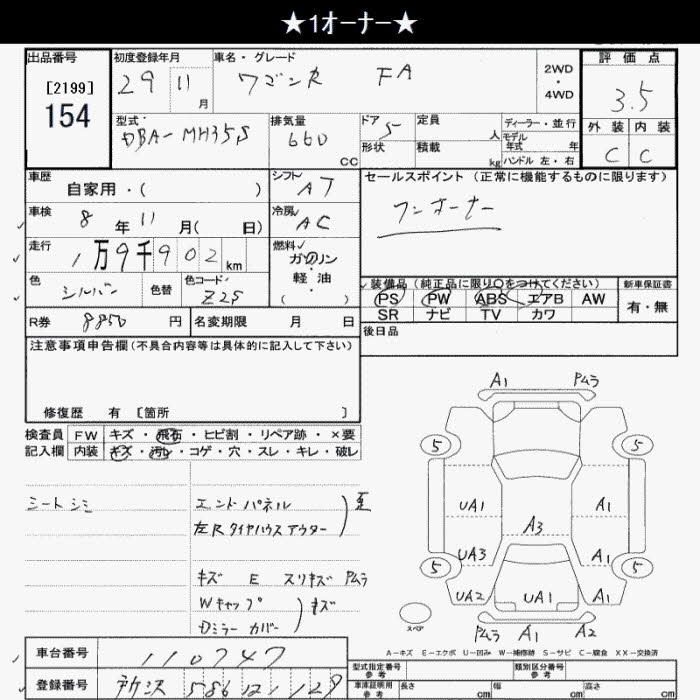 ★1オーナー★
出品番号
[2199]
154
初度登録年月
29 11 月
車名・グレード
ワゴンR FA
2WD
・
4WD
評価点
3.5
外装 内装
C C
型式
DBA-MH35S
排気量
660 CC
ドア 5
形状
定員 人
積載 kg
ディーラー・並行
モデル年式 年
ハンドル 左・右
車歴
自家用・( )
シフト
AT
車検
8 年 11 月( 日)
冷房
AC
走行
1万9千902 km
燃料
ガソリン
・
軽油
( )
色
シルバー
色替
色コード
Z2S
R券 8850 円
名変期限 月 日
セールスポイント (正常に機能するものに限ります)
ワンオーナー
装備品 (純正品に限り○をつけてください)
PS PW ABS エアB AW
SR ナビ TV カワ
新車保証書
有・無
後日品
注意事項申告欄(不具合内容等は具体的に記入して下さい)
修復歴 有 [箇所 ]
検査員記入欄
FW キズ・飛石・ヒビ割・リペア跡・×要
内装 キズ・汚レ・コゲ・穴・スレ・キレ・破レ
シートシミ
エンドパネル
左Rタイヤハウスアウター
歪
キズ E スリキズ Pムラ
Wキャップ
Dミラーカバー
キズ
A1 Pムラ
5 5
UA1 A1
A3
UA3 A1
5 5
UA2 UA1 A1
Pムラ A1 A2
スペア
A-キズ E-エクボ U-凹み W-補修跡 S-サビ C-腐食 XX-交換済
車台番号 110747
登録番号 所沢 586 い 129
型式指定番号
参考
類別区分番号
参考
車庫証明用
参考
長さ cm
幅 cm
高さ cm